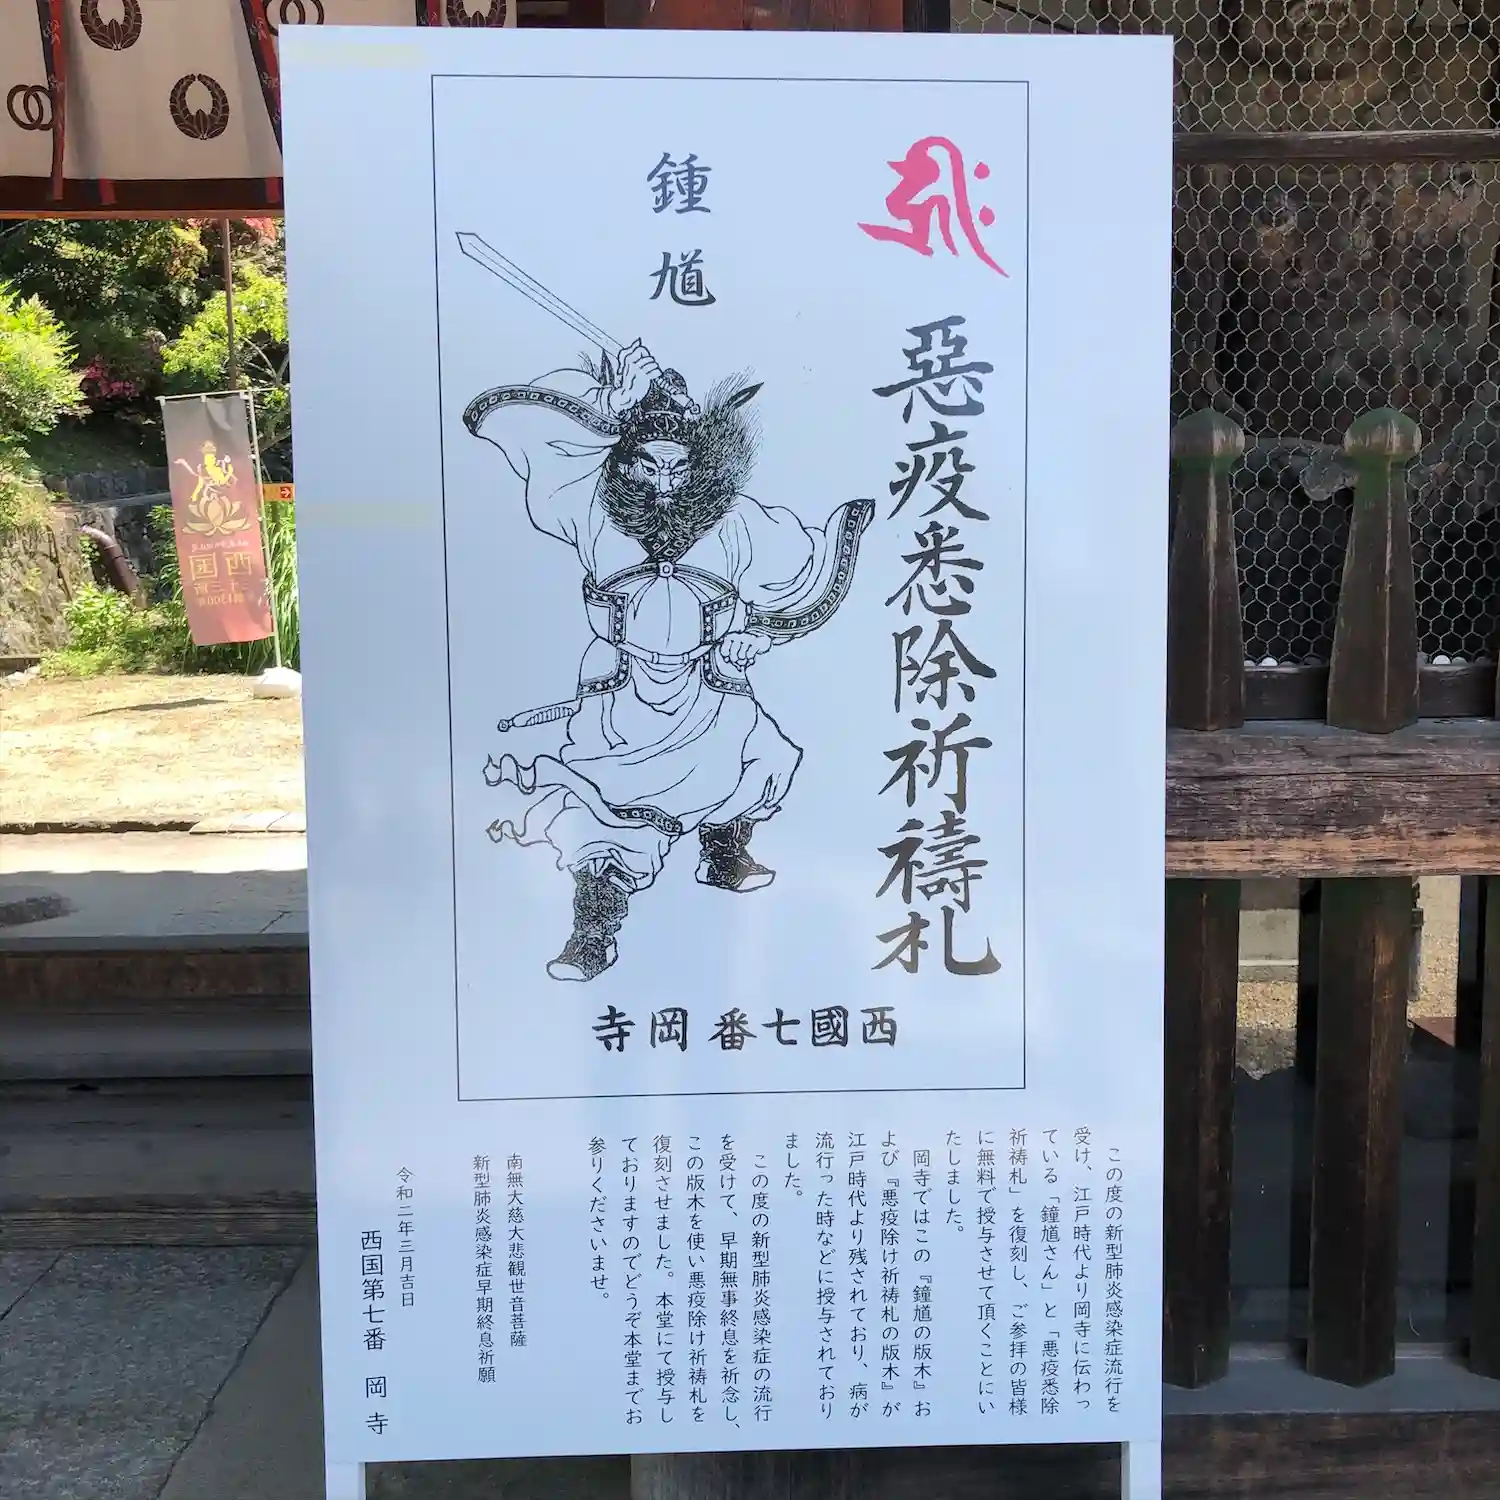 惡疫悉除祈禱札
鍾馗
西國七番 岡寺
この度の新型肺炎感染症流行を
受け、江戸時代より岡寺に伝わっ
ている「鐘馗さん」と「悪疫悉除
祈祷札」を復刻し、ご参拝の皆様
に無料で授与させて頂くことにい
たしました。
岡寺ではこの『鐘馗の版木』お
よび『悪疫除け祈祷札の版木』が
江戸時代より残されており、病が
流行った時などに授与されており
ました。
この度の新型肺炎感染症の流行
を受けて、早期無事終息を祈念し、
この版木を使い悪疫除け祈祷札を
復刻させました。本堂にて授与し
ておりますのでどうぞ本堂までお
参りくださいませ。
南無大慈大悲観世音菩薩
新型肺炎感染症早期終息祈願
令和二年三月吉日
西国第七番 岡寺